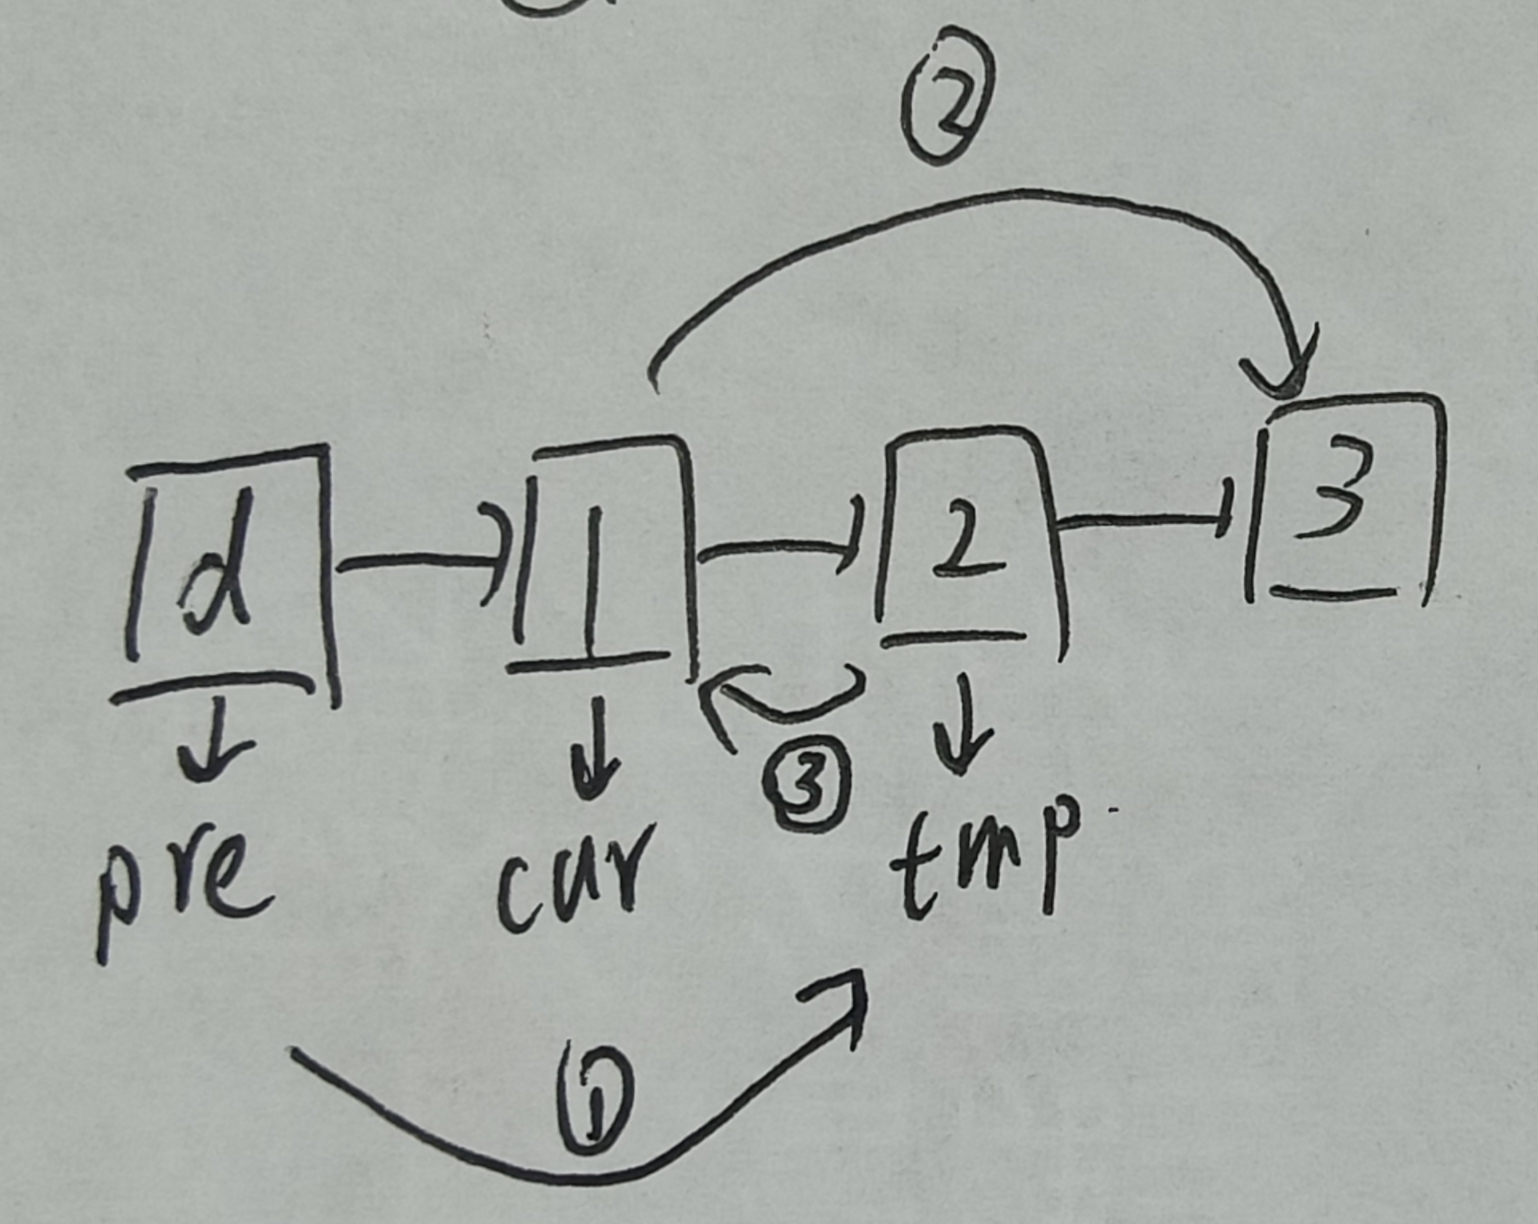 ②
d 1 2 3
③
pre cur tmp
①